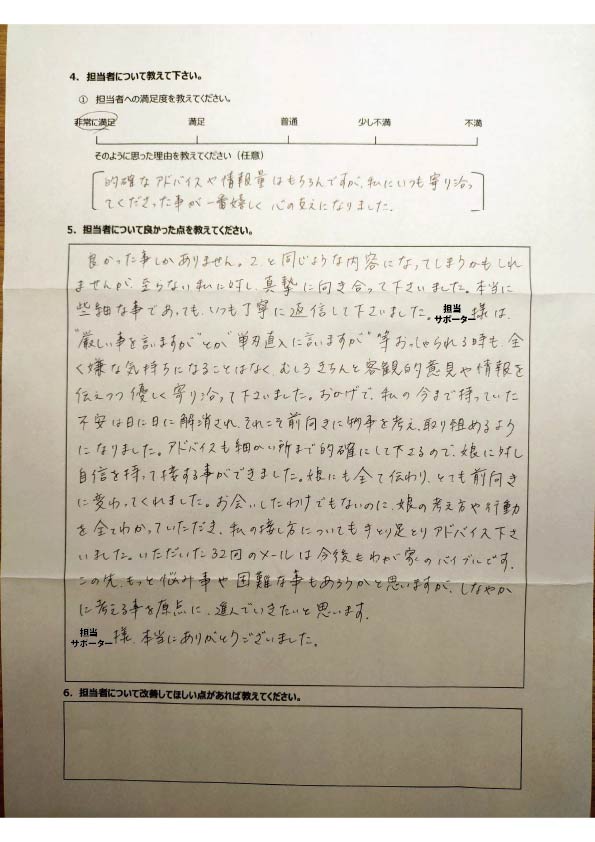 4．担当者について教えて下さい。
① 担当者への満足度を教えてください。
非常に満足 満足 普通 少し不満 不満
そのように思った理由を教えてください（任意）
的確なアドバイスや情報量はもちろんですが、私にいつも寄り沿っ
てくださった事が一番嬉しく心の支えになりました。
5．担当者について良かった点を教えてください。
良かった事しかありません。2.と同じような内容になってしまうかもしれ
ませんが、至らない私に対し、真摯に向き合って下さいました。本当に
些細な事であっても、いつも丁寧に返信して下さいました。担当サポーター様は、
"厳しい事を言いますが"とか"単刀直入に言いますが"等おっしゃられる時も、全
く嫌な気持ちになることはなく、むしろきちんと客観的意見や情報を
伝えつつ優しく寄り沿って下さいました。おかげで、私の今まで持っていた
不安は日に日に解消され、それこそ前向きに物事を考え、取り組めるよう
になりました。アドバイスも細かい所まで的確にして下さるので、娘に対し
自信を持って接する事ができました。娘にも全て伝わり、とても前向き
に変わってくれました。お会いしたわけでもないのに、娘の考え方や行動
を全てわかっていただき、私の接し方についても手とり足とりアドバイス下さ
いました。いただいた32回のメールは今後もわが家のバイブルです。
この先、もっと悩み事や困難な事もあろうかと思いますが、しなやか
に考える事を原点に、進んでいきたいと思います。
担当サポーター様、本当にありがとうございました。
6．担当者について改善してほしい点があれば教えてください。